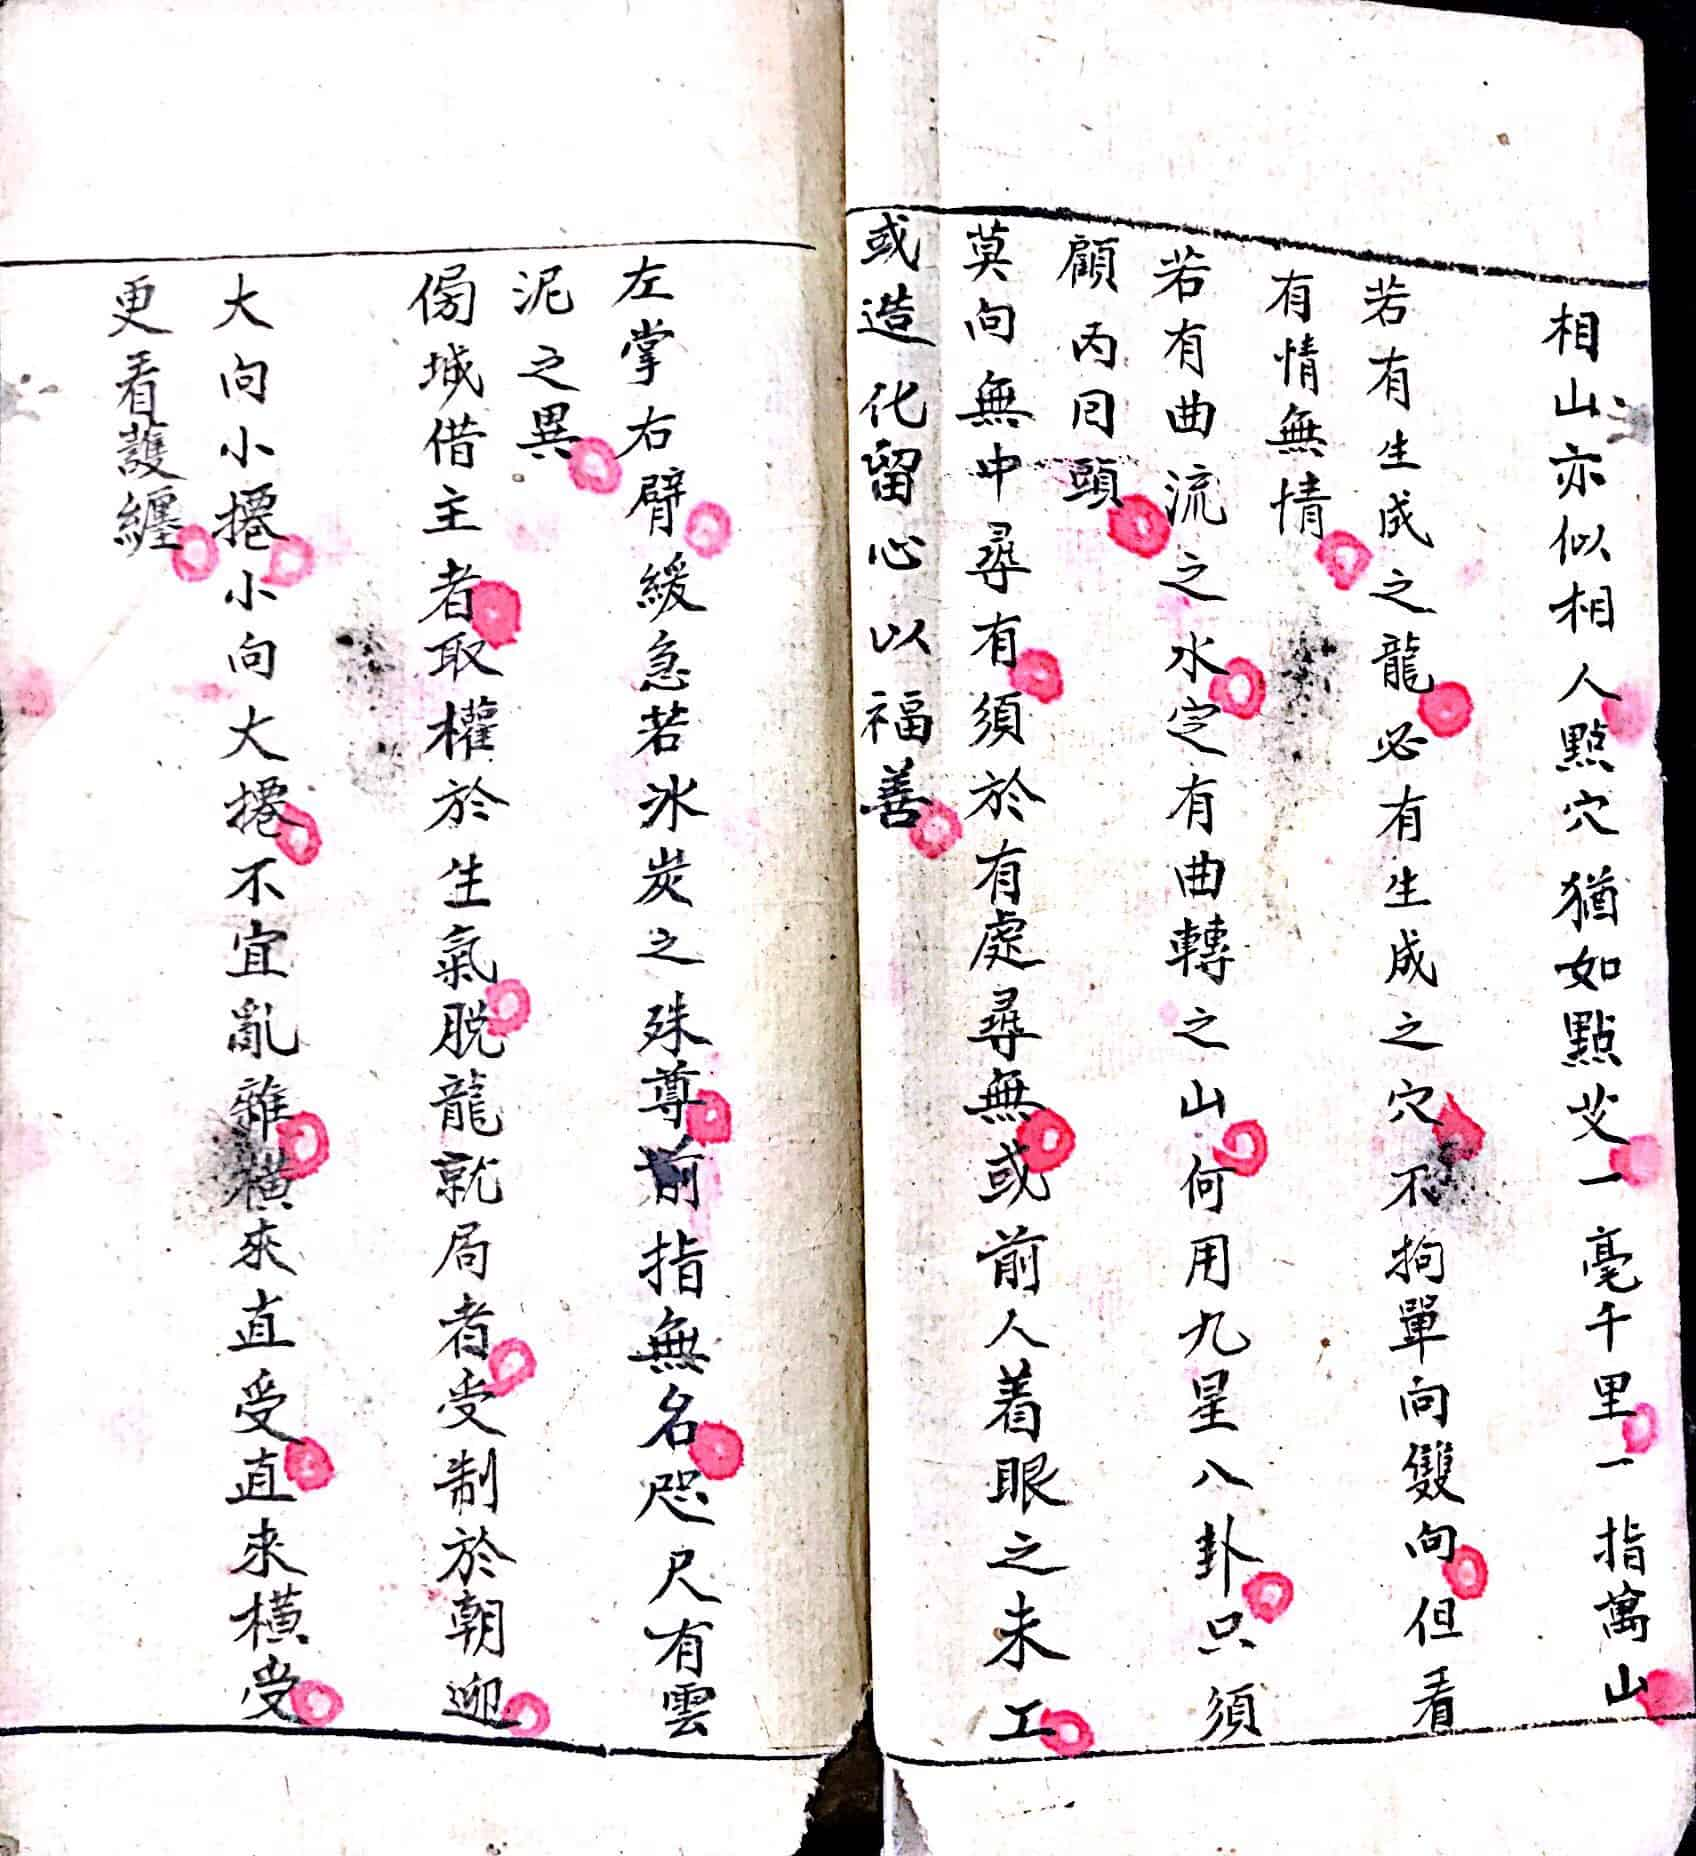 相山亦似相人點穴猶如點艾一毫千里一指萬山
若有生成之龍必有生成之穴不拘單向雙向但看
有情無情
若有曲流之水定有曲轉之山何用九星八卦只須
顧內回頭
莫向無中尋有須於有處尋無或前人着眼之未工
或造化留心以福善
左掌右臂緩急若冰炭之殊尊前指無名咫尺有雲
泥之異
傍城借主者取權於生氣脱龍就局者受制於朝迎
大向小攓小向大攓不宜亂雜橫來直受直來橫受
更看護纏